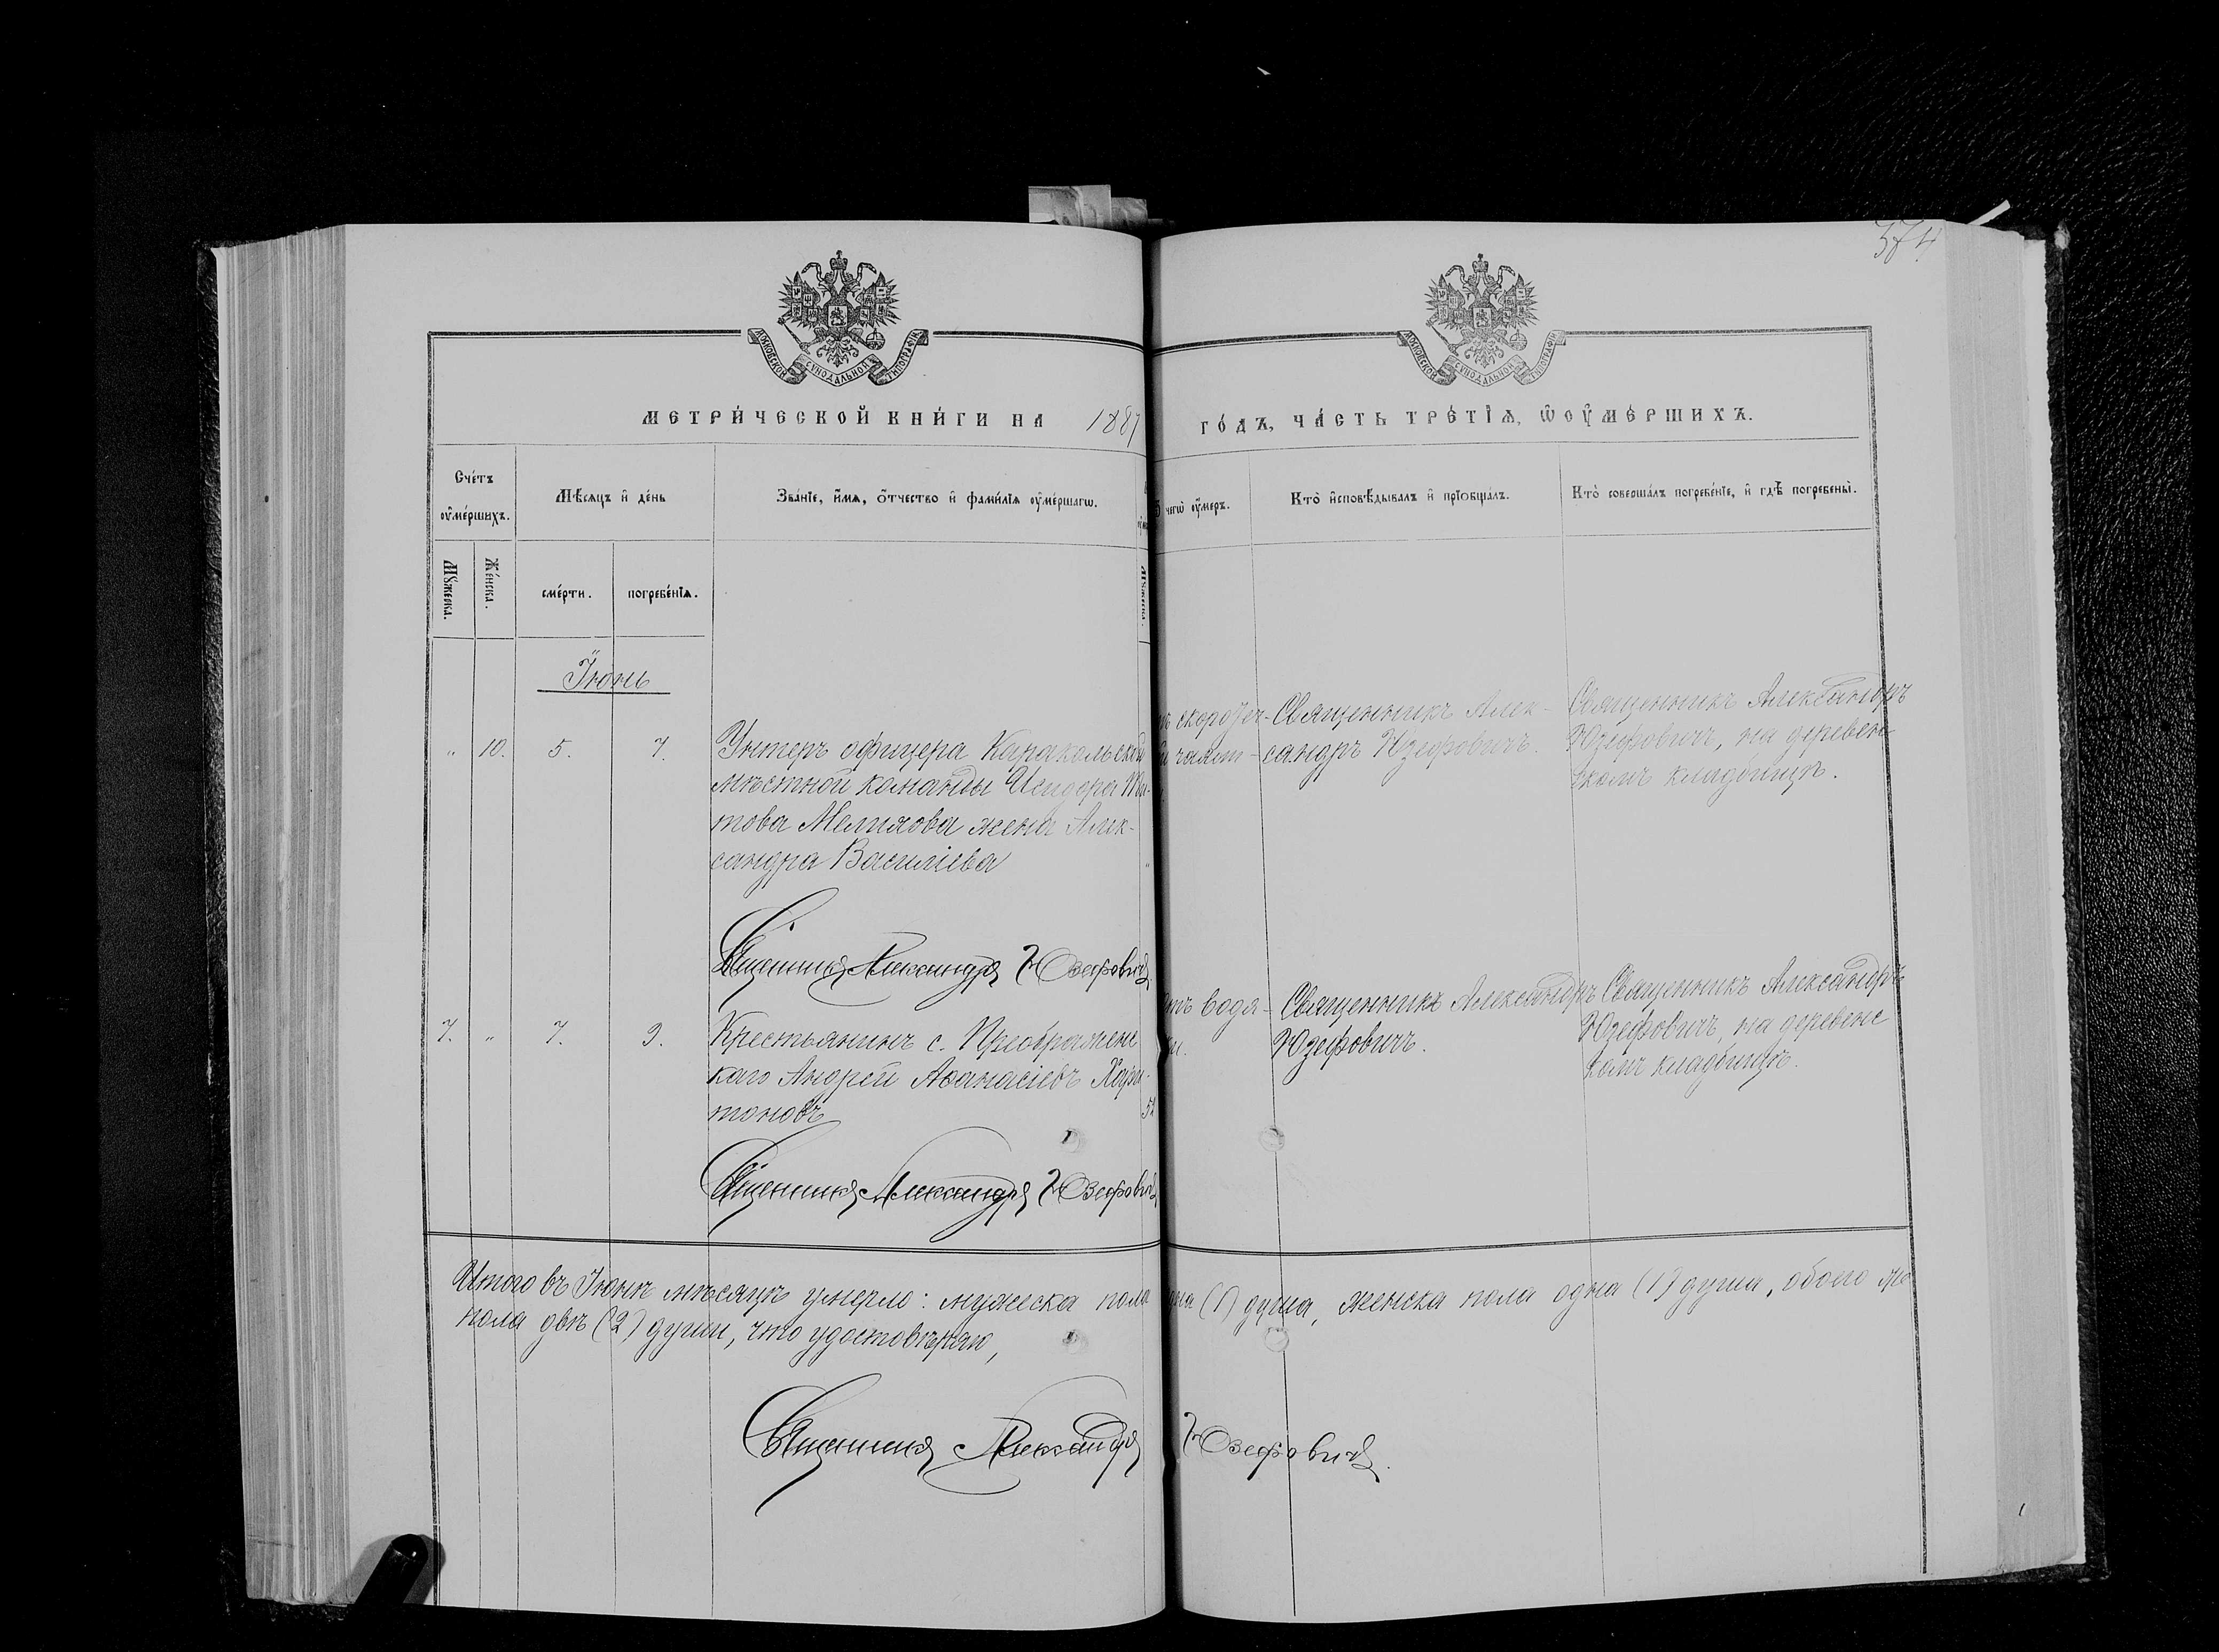 374
МОСКОВСКОЙ СУНОДАЛЬНОЙ ТИПОГРАФІИ
МОСКОВСКОЙ СУНОДАЛЬНОЙ ТИПОГРАФІИ
МЕТРИ́ЧЕСКОЙ КНИ́ГИ НА 1887 ГО́ДЪ, ЧА́СТЬ ТРЕ́ТІѦ, Ѡ ОУ҆МЕ́РШИХЪ.
Сче́тъ оу҆ме́ршихъ.
Мѣ́сѧцъ и҆ де́нь
Зва́нїе, и҆́мѧ, ѻ҆́тчество и҆ фами́лїѧ оу҆ме́ршагѡ.
чегѡ̀ оу҆́меръ.
Кто̀ и҆сповѣ́дывалъ и҆ прїѻбща́лъ.
Кто̀ соверша́лъ погребе́нїе, и҆ гдѣ̀ погребены̀.
Мꙋ́жеска.
Же́нска.
сме́рти.
погребе́нїѧ.
Мꙋ́жеска.
Іюнь
" 10. 5. 7.
Унтеръ офицера Каракольской
мѣстной команды Исидора Ти-
това Мелихова жена Алек-
сандра Василіева
скоротеч-
чахот-
Священникъ Алек-
сандръ Юзефовичъ.
Священникъ Александръ
Юзефовичъ, на деревен
скомъ кладбищѣ.
Священникъ Александръ Юзефовичъ
7. " 7. 9.
Крестьянинъ с. Преображенс
каго Андрей Аѳанасіевъ Хари-
тоновъ
52
отъ водя-
ки.
Священникъ Александръ
Юзефовичъ.
Священникъ Александръ
Юзефовичъ, на деревенс
комъ кладбищѣ.
Священникъ Александръ Юзефовичъ
Итого въ Іюнѣ мѣсяцѣ умерло: мужеска пола одна (1) душа, женска пола одна (1) душа, обоего же
пола двѣ (2) души, что удостовѣряю,
Священникъ Александръ Юзефовичъ.